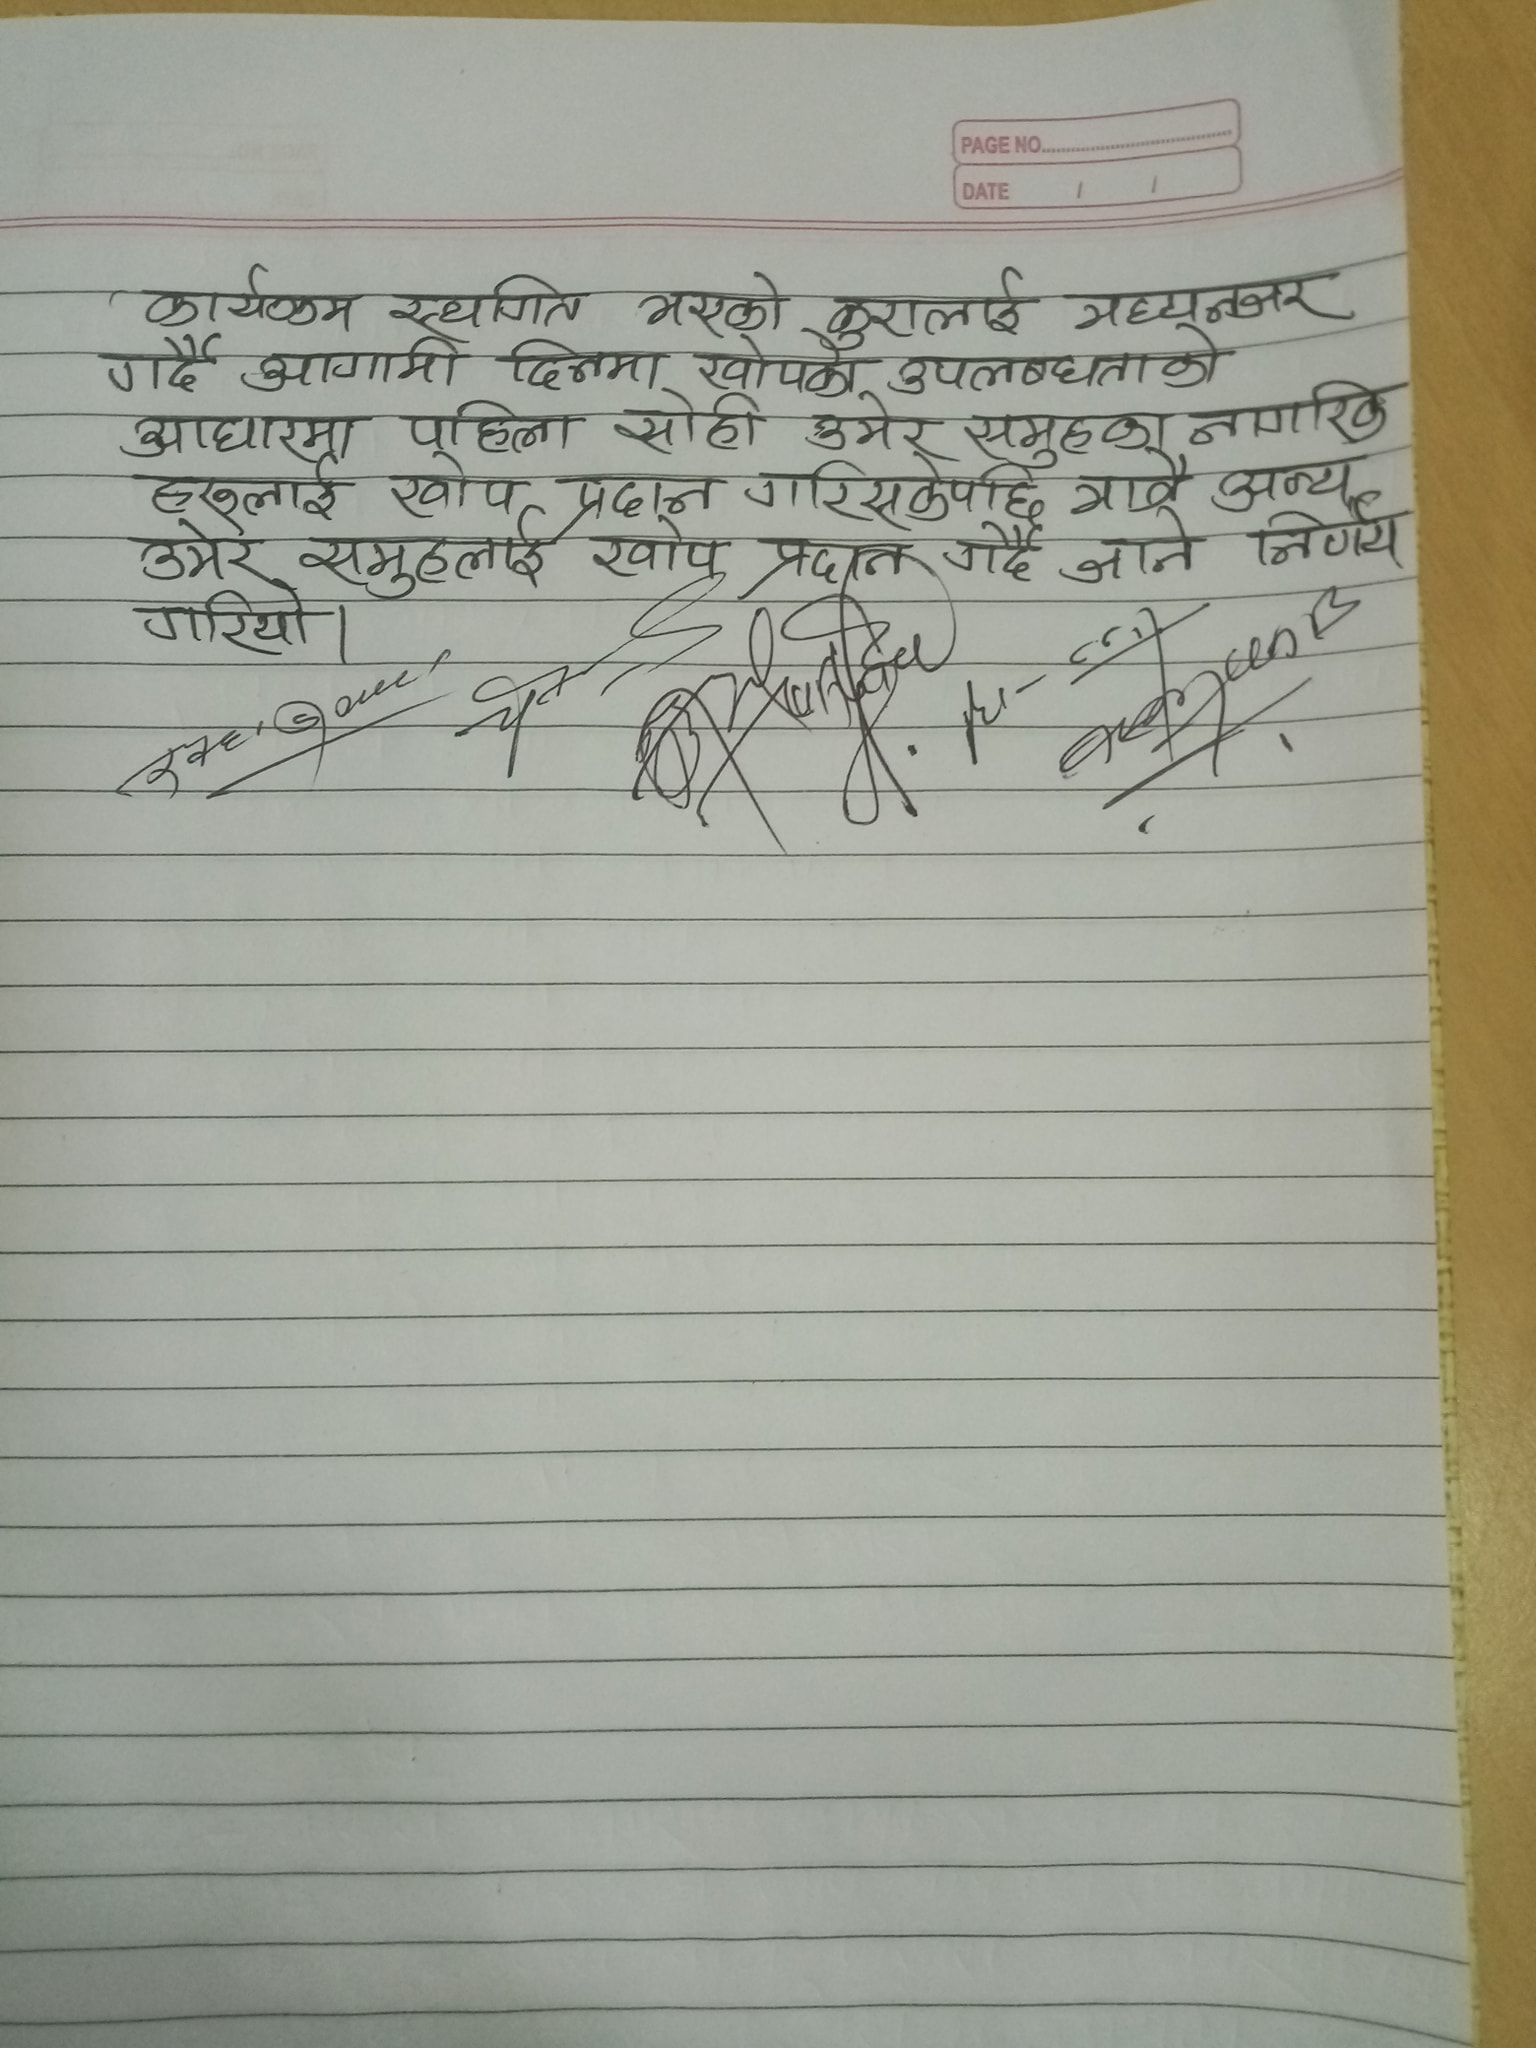 PAGE NO.
DATE / /
कार्यक्रम स्थगित भएको कुरालाई मध्यनजर
गर्दै आगामी दिनमा खोपको उपलब्धताको
आधारमा पहिला सोही उमेर समुहका नागरिक
हरूलाई खोप प्रदान गरिसकेपछि मात्रै अन्य
उमेर समुहलाई खोप प्रदान गर्दै जाने निर्णय
गरियो।